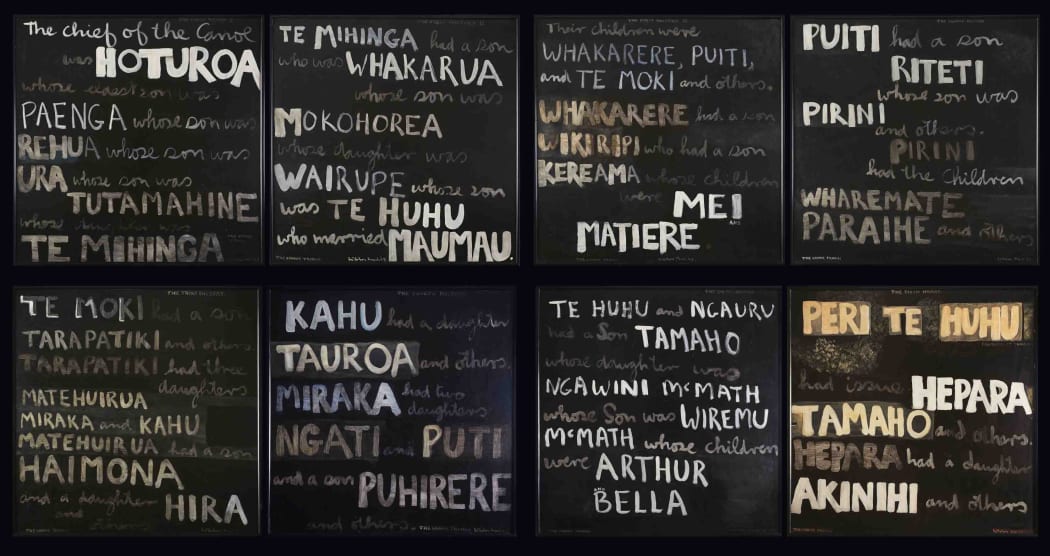 The chief of the Canoe
was HOTUROA
whose eldest son was
PAENGA whose son was
REHUA whose son was
URA whose son was
TUTAMAHINE
whose son was
TE MIHINGA
TE MIHINGA had a son
who was WHAKARUA
whose son was
MOKOHOREA
whose daughter was
WAIRUPE whose son
was TE HUHU
who married MAUMAU.
Their children were
WHAKARERE, PUITI,
and TE MOKI and others.
WHAKARERE had a son
WIKIRIPI who had a son
KEREAMA whose children
were MEI
AND
MATIERE.
PUITI had a son
RITETI
whose son was
PIRINI
and others.
PIRINI
had the children
WHAREMATE
PARAIHE and others
TE MOKI had a son
TARAPATIKI and others.
TARAPATIKI had three
daughters
MATEHUIRUA
MIRAKA and KAHU
MATEHUIRUA had a son
HAIMONA
and a daughter
HIRA
and
KAHU had a daughter
TAUROA and others.
MIRAKA had two
daughters
NGATI and PUTI
and a son PUHIRERE
and others.
TE HUHU and NGAURU
had a Son TAMAHO
whose daughter was
NGAWINI McMATH
whose Son was WIREMU
McMATH whose children
were ARTHUR
AND
BELLA
PERI TE HUHU
had issue HEPARA
TAMAHO and others.
HEPARA had a daughter
AKINIHI and others